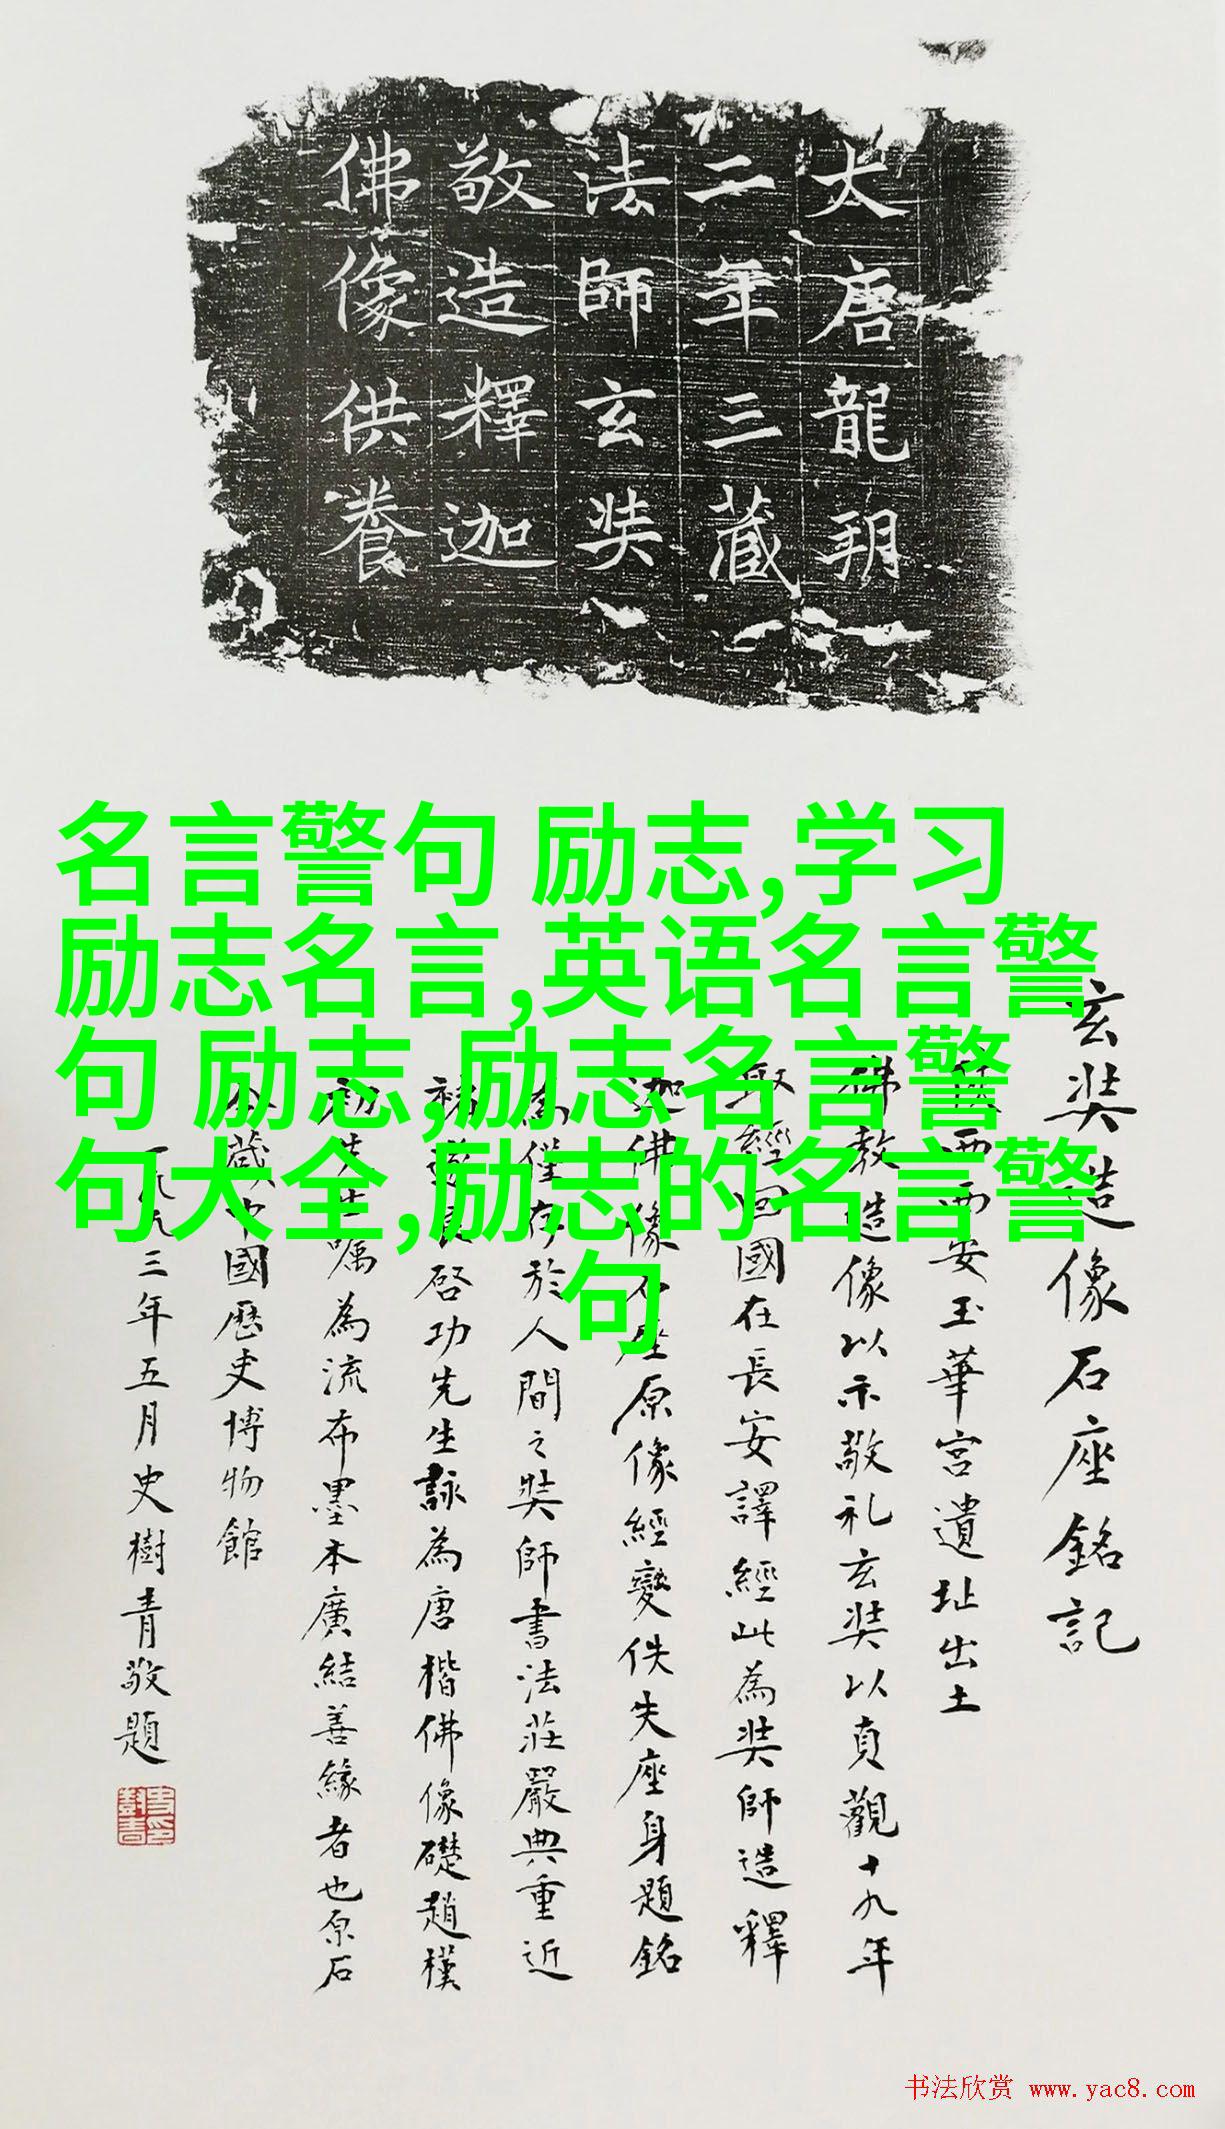 大唐龍朔
二年三藏
法師玄奘
敬造釋迦
佛像供養
名言警句 励志,学习
励志名言,英语名言警
句 励志,励志名言警
句大全,励志的名言警
句
玄奘造像石座銘記
西西安玉華宮遺址出土
佛教造像以示敬礼玄奘以貞觀十九年
取經回國在長安譯經此為奘師造釋
迦佛像石座原像經變佚失座身題銘
為僅存於人間之奘師書法莊嚴典重近
褚遂良启功先生詠為唐楷佛像礎趙樸
初先生囑為流布墨本廣結善緣者也原石
今藏中國歷史博物館
一九九三年五月史樹青敬題
书法欣赏 www.yac8.com